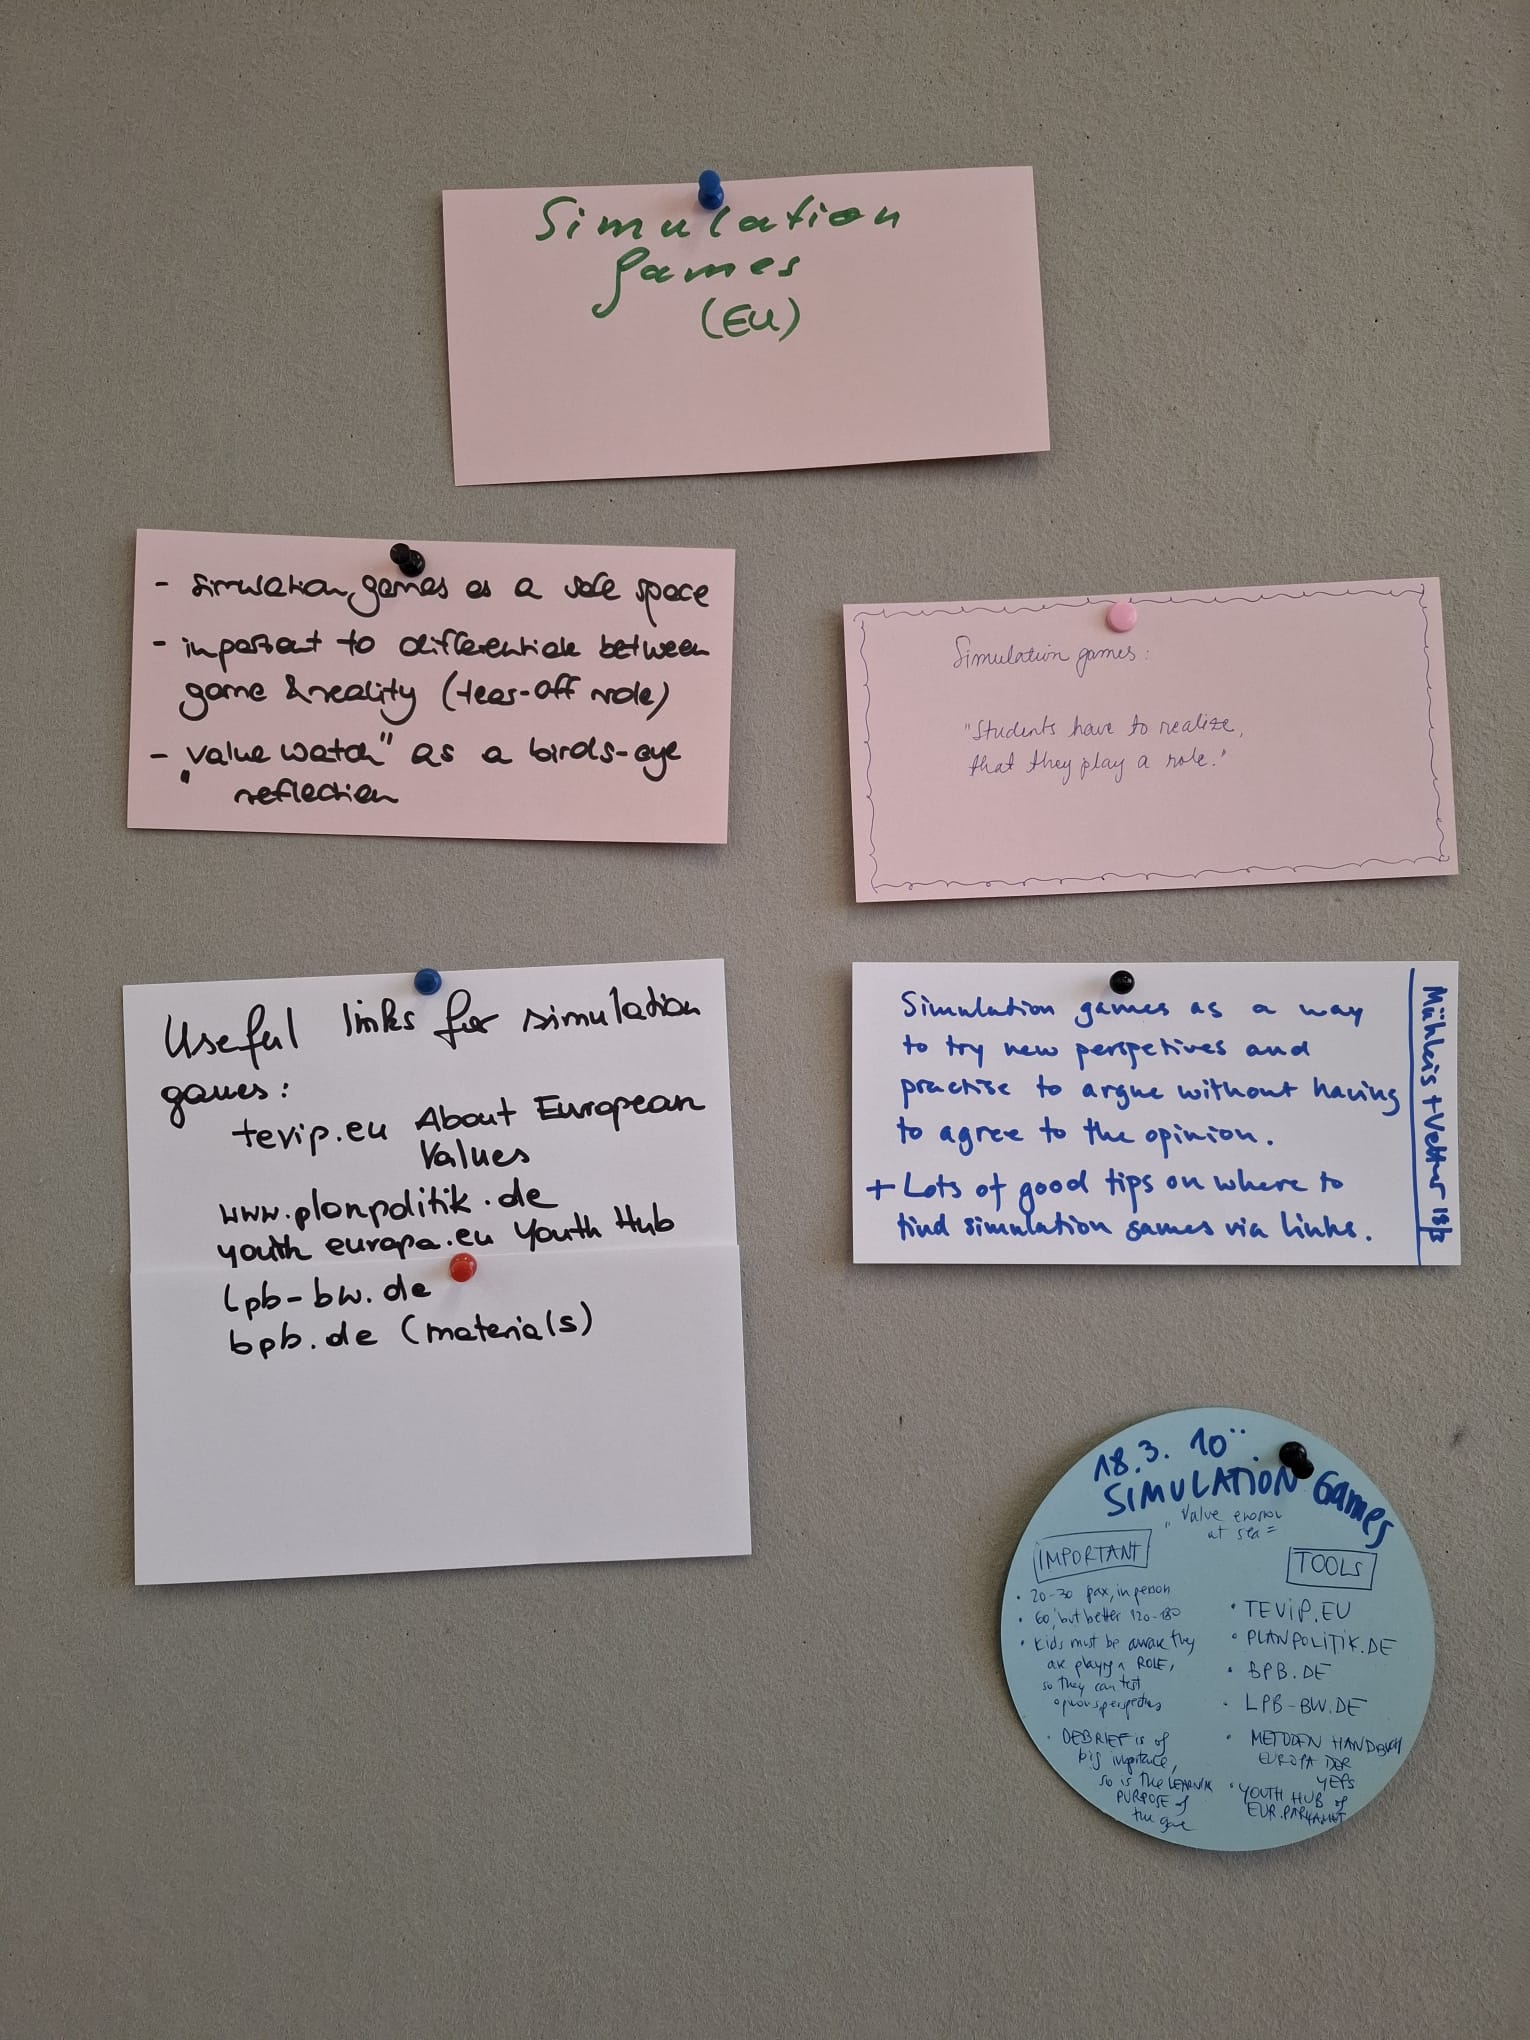 Simulation
games
(EU)
- simulation games as a safe space
- important to differentiate between
game & reality (tear-off role)
- "value watch" as a birds-eye
reflection
Simulation games:
"Students have to realize,
that they play a role."
Useful links for simulation
games:
tevip.eu About European
Values
www.planpolitik.de
youth europa.eu Youth Hub
lpb-bw.de
bpb.de (materials)
Simulation games as a way
to try new perspetives and
practise to argue without having
to agree to the opinion.
+ Lots of good tips on where to
find simulation games via links.
Mühleis + 18/3
18.3. 10
SIMULATION Games
"Value
at sea"
IMPORTANT
• 20-30 pax, in person
• 60', but better 120-180
• Kids must be aware they
are playing a ROLE,
so they can test
• DEBRIEF is of
big
so is the
PURPOSE of
the game
TOOLS
• TEVIP.EU
• PLANPOLITIK.DE
• BPB.DE
• LPB-BW.DE
• METODEN HANDBUCH
EUROPA DER
YEPS
• YOUTH HUB of
EUR.PARLAMENT